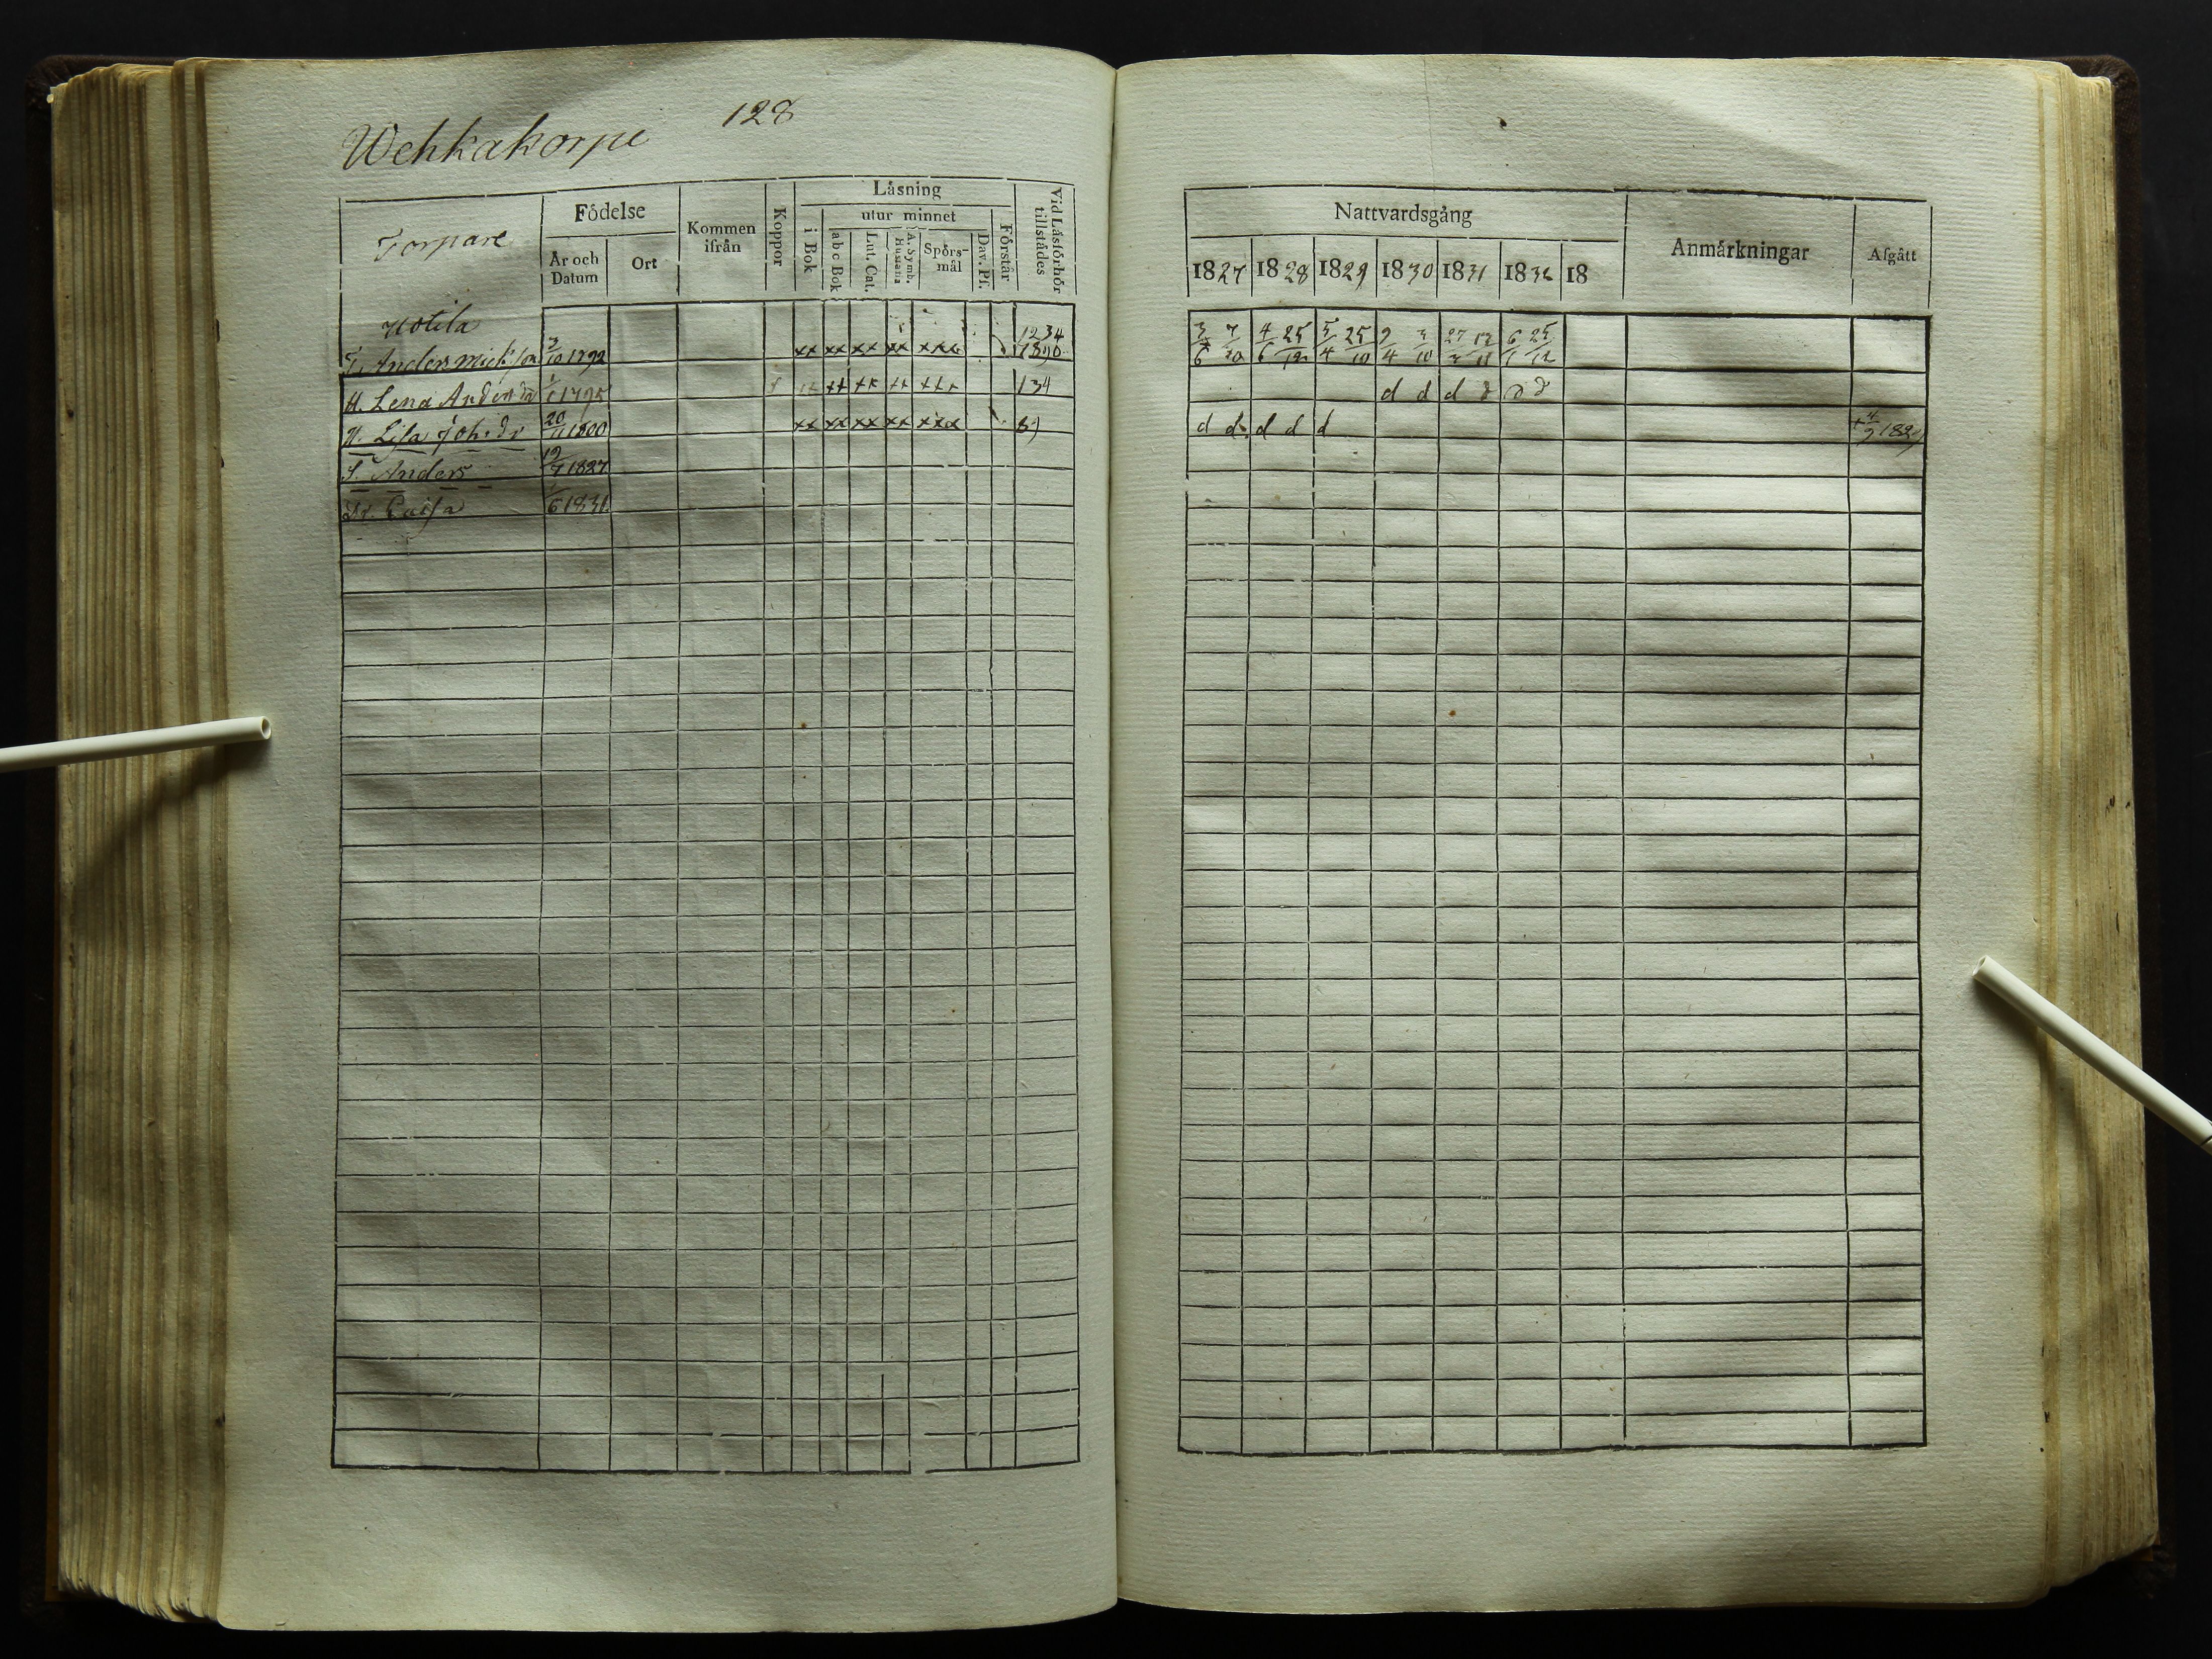 128
Wehkakorpe
Torpare
Födelse
År och Datum
Ort
Kommen ifrån
Koppor
Läsning
i Bok
utur minnet
a b c Bok
Lut. Cat.
A. Symb. Hustafla
Spörs-mål
Dav. Ps.
Förstår
Vid Läsförhör tillstädes
Hotila
T. Anders Micksson 3/10 1792 xx xx xx xx xxx 1234 7890
H. Lena Andersdr 1795 xx xx xx xx xxx 134
H. Lisa Joh:dr 20/11 1800 xx xx xx xx xxx 89
S. Anders 19/7 1827
Dr. Caisa 1/6 1831
Nattvardsgång
Anmärkningar
Afgått
1827 1828 1829 1830 1831 1832 18
3/6 7/10 4/6 25/12 5/4 25/10 9/4 3/10 27/3 12/11 6/1 25/12
d d d d d d
d d d d d + 4/9 1829